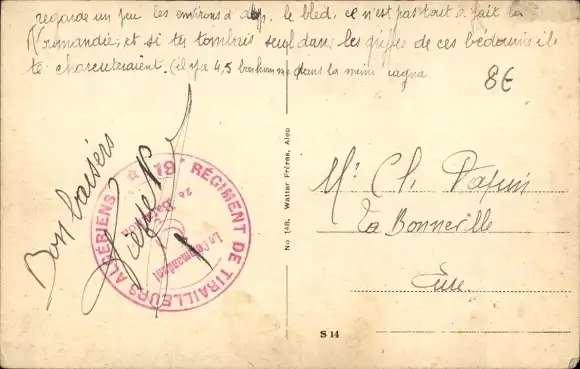 regarde un peu les environs d'Alep. le bled, ce n'est pas tout a fait la
Normandie, et si tu tombais seul dans les griffes de ces bédouins ils
te charcuteraient. (il y a 4,5 bonhomme dans la même cagna
8€
Bons baisers
Pierre
★ 19e RÉGIMENT DE TIRAILLEURS ALGÉRIENS
2e Bataillon
Le Commandant
No 148. Wattar Frères, Alep
Mr Ch. Papin
La Bonneville
Eure
S 14